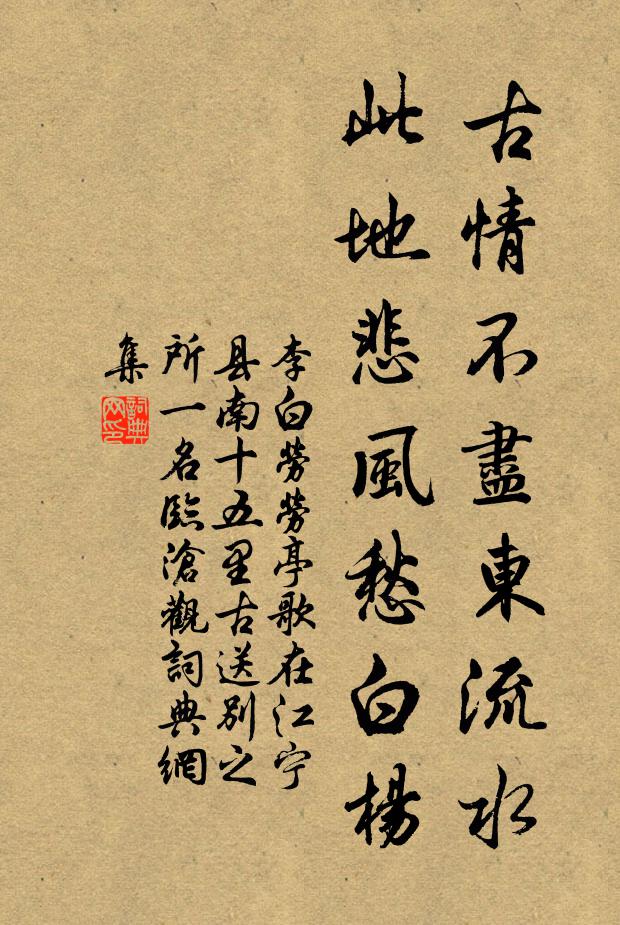 古情不盡東流水
此地悲風愁白楊
李白勞勞亭歌在江宁
县南十五里古送别之
所一名臨滄觀詞典網
集
詞典
网印